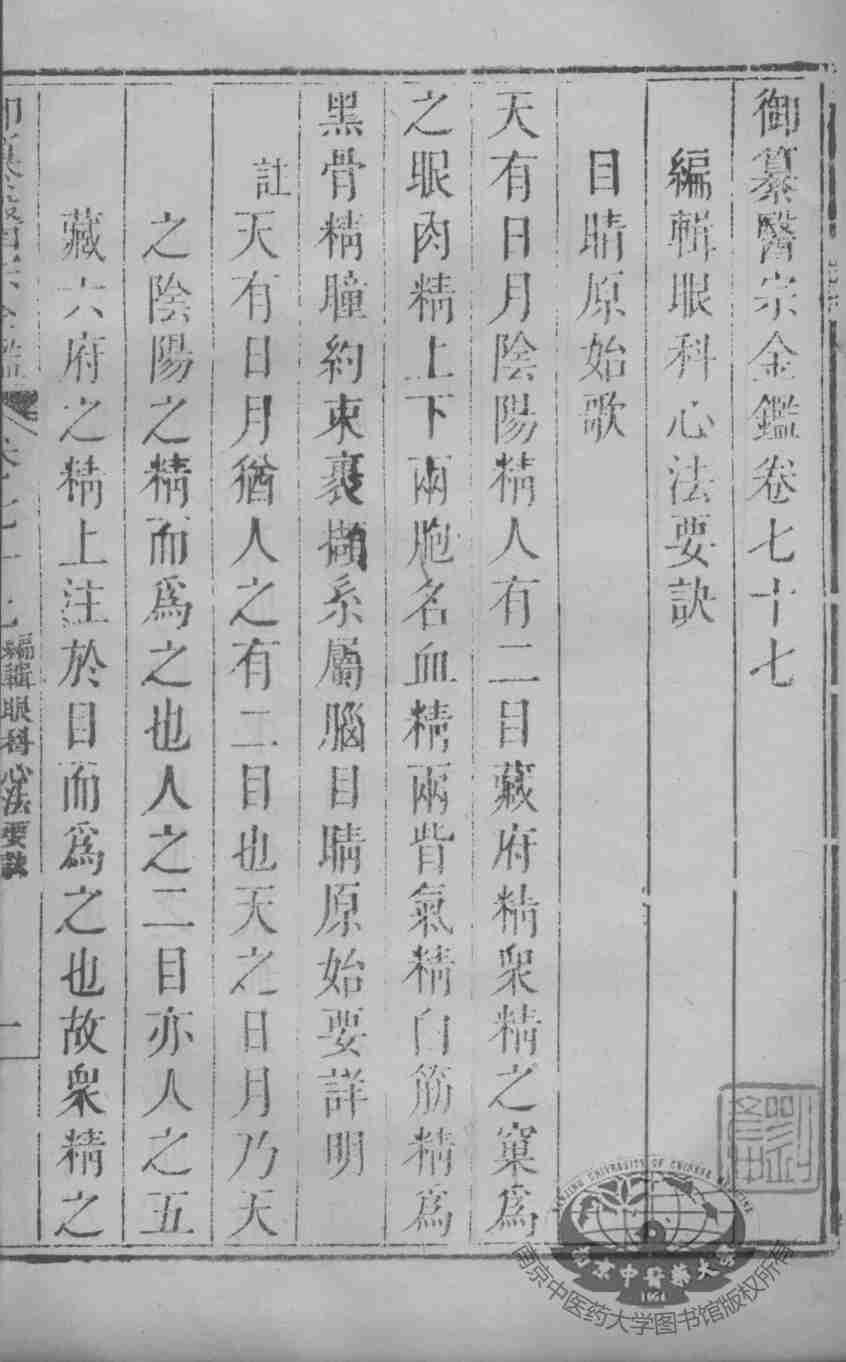 御纂醫宗金鑑卷七十七
編輯眼科心法要訣
目睛原始歌
天有日月陰陽精人有二目藏府精衆精之窠爲
之眼肉精上下兩胞名血精兩眥氣精白筋精爲
黑骨精瞳約束裹擷系屬腦目睛原始要詳明
註天有日月猶人之有二目也天之日月乃天
之陰陽之精而爲之也人之二目亦人之五
藏六府之精上注於目而爲之也故衆精之
編輯眼科心法要訣
一
NANJING UNIVERSITY OF CHINESE MEDICINE
南京中醫藥大學
1954
南京中医药大学图书馆版权所有